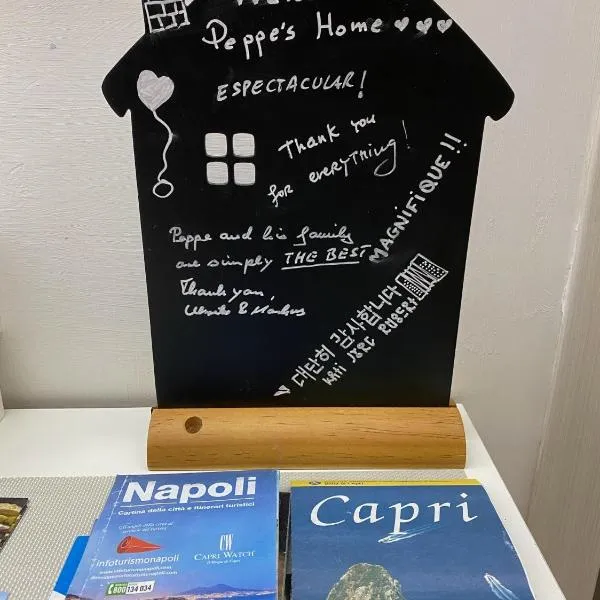 Peppe's Home
ESPECTACULAR!
Thank you
for everything!
MAGNIFIQUE!!
Peppe and his family
are simply THE BEST
Thank you,
대단히 감사합니다
Napoli
Cartina della città e itinerari turistici
infoturismonapoli
www.infoturismonapoli.com
800 134 034
CW
CAPRI WATCH
Capri